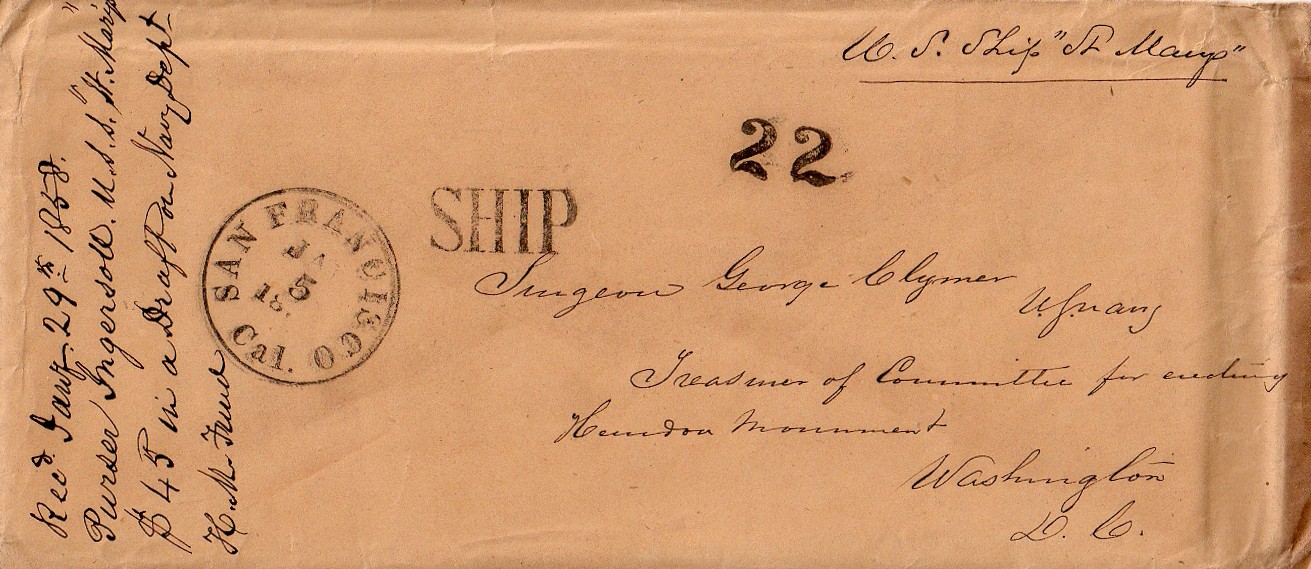 U. S. Ship "St Marys"
22
SHIP
SAN FRANCISCO
JAN
5
185
Cal.
Surgeon George Clymer
U.S. navy
Treasurer of Committee for erecting
Herndon Monument
Washington
D. C.
Recd. Jany. 29th 1858.
Purser Ingersoll. U.S.S. "St. Mary's"
$45 in a Draft on Navy Dept
H. M. Fund